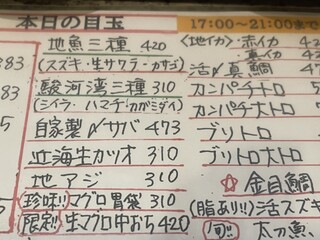 本日の目玉
地魚三種 420
(スズキ・生サワラ・カサゴ)
駿河湾三種 310
(シイラ・ハマチ・カガミダイ)
自家製〆サバ 473
近海生カツオ 310
地アジ 310
(珍味!!)マグロ胃袋 310
(限定!)生マグロ中おち 420
17:00~21:00まで
<地イカ>・赤イカ
活〆真鯛 47
カンパチトロ
カンパチ大トロ
ブリトロ
ブリトロ大トロ
☆金目鯛
(脂あり!!)活スズキ
(旬!!)太刀魚、